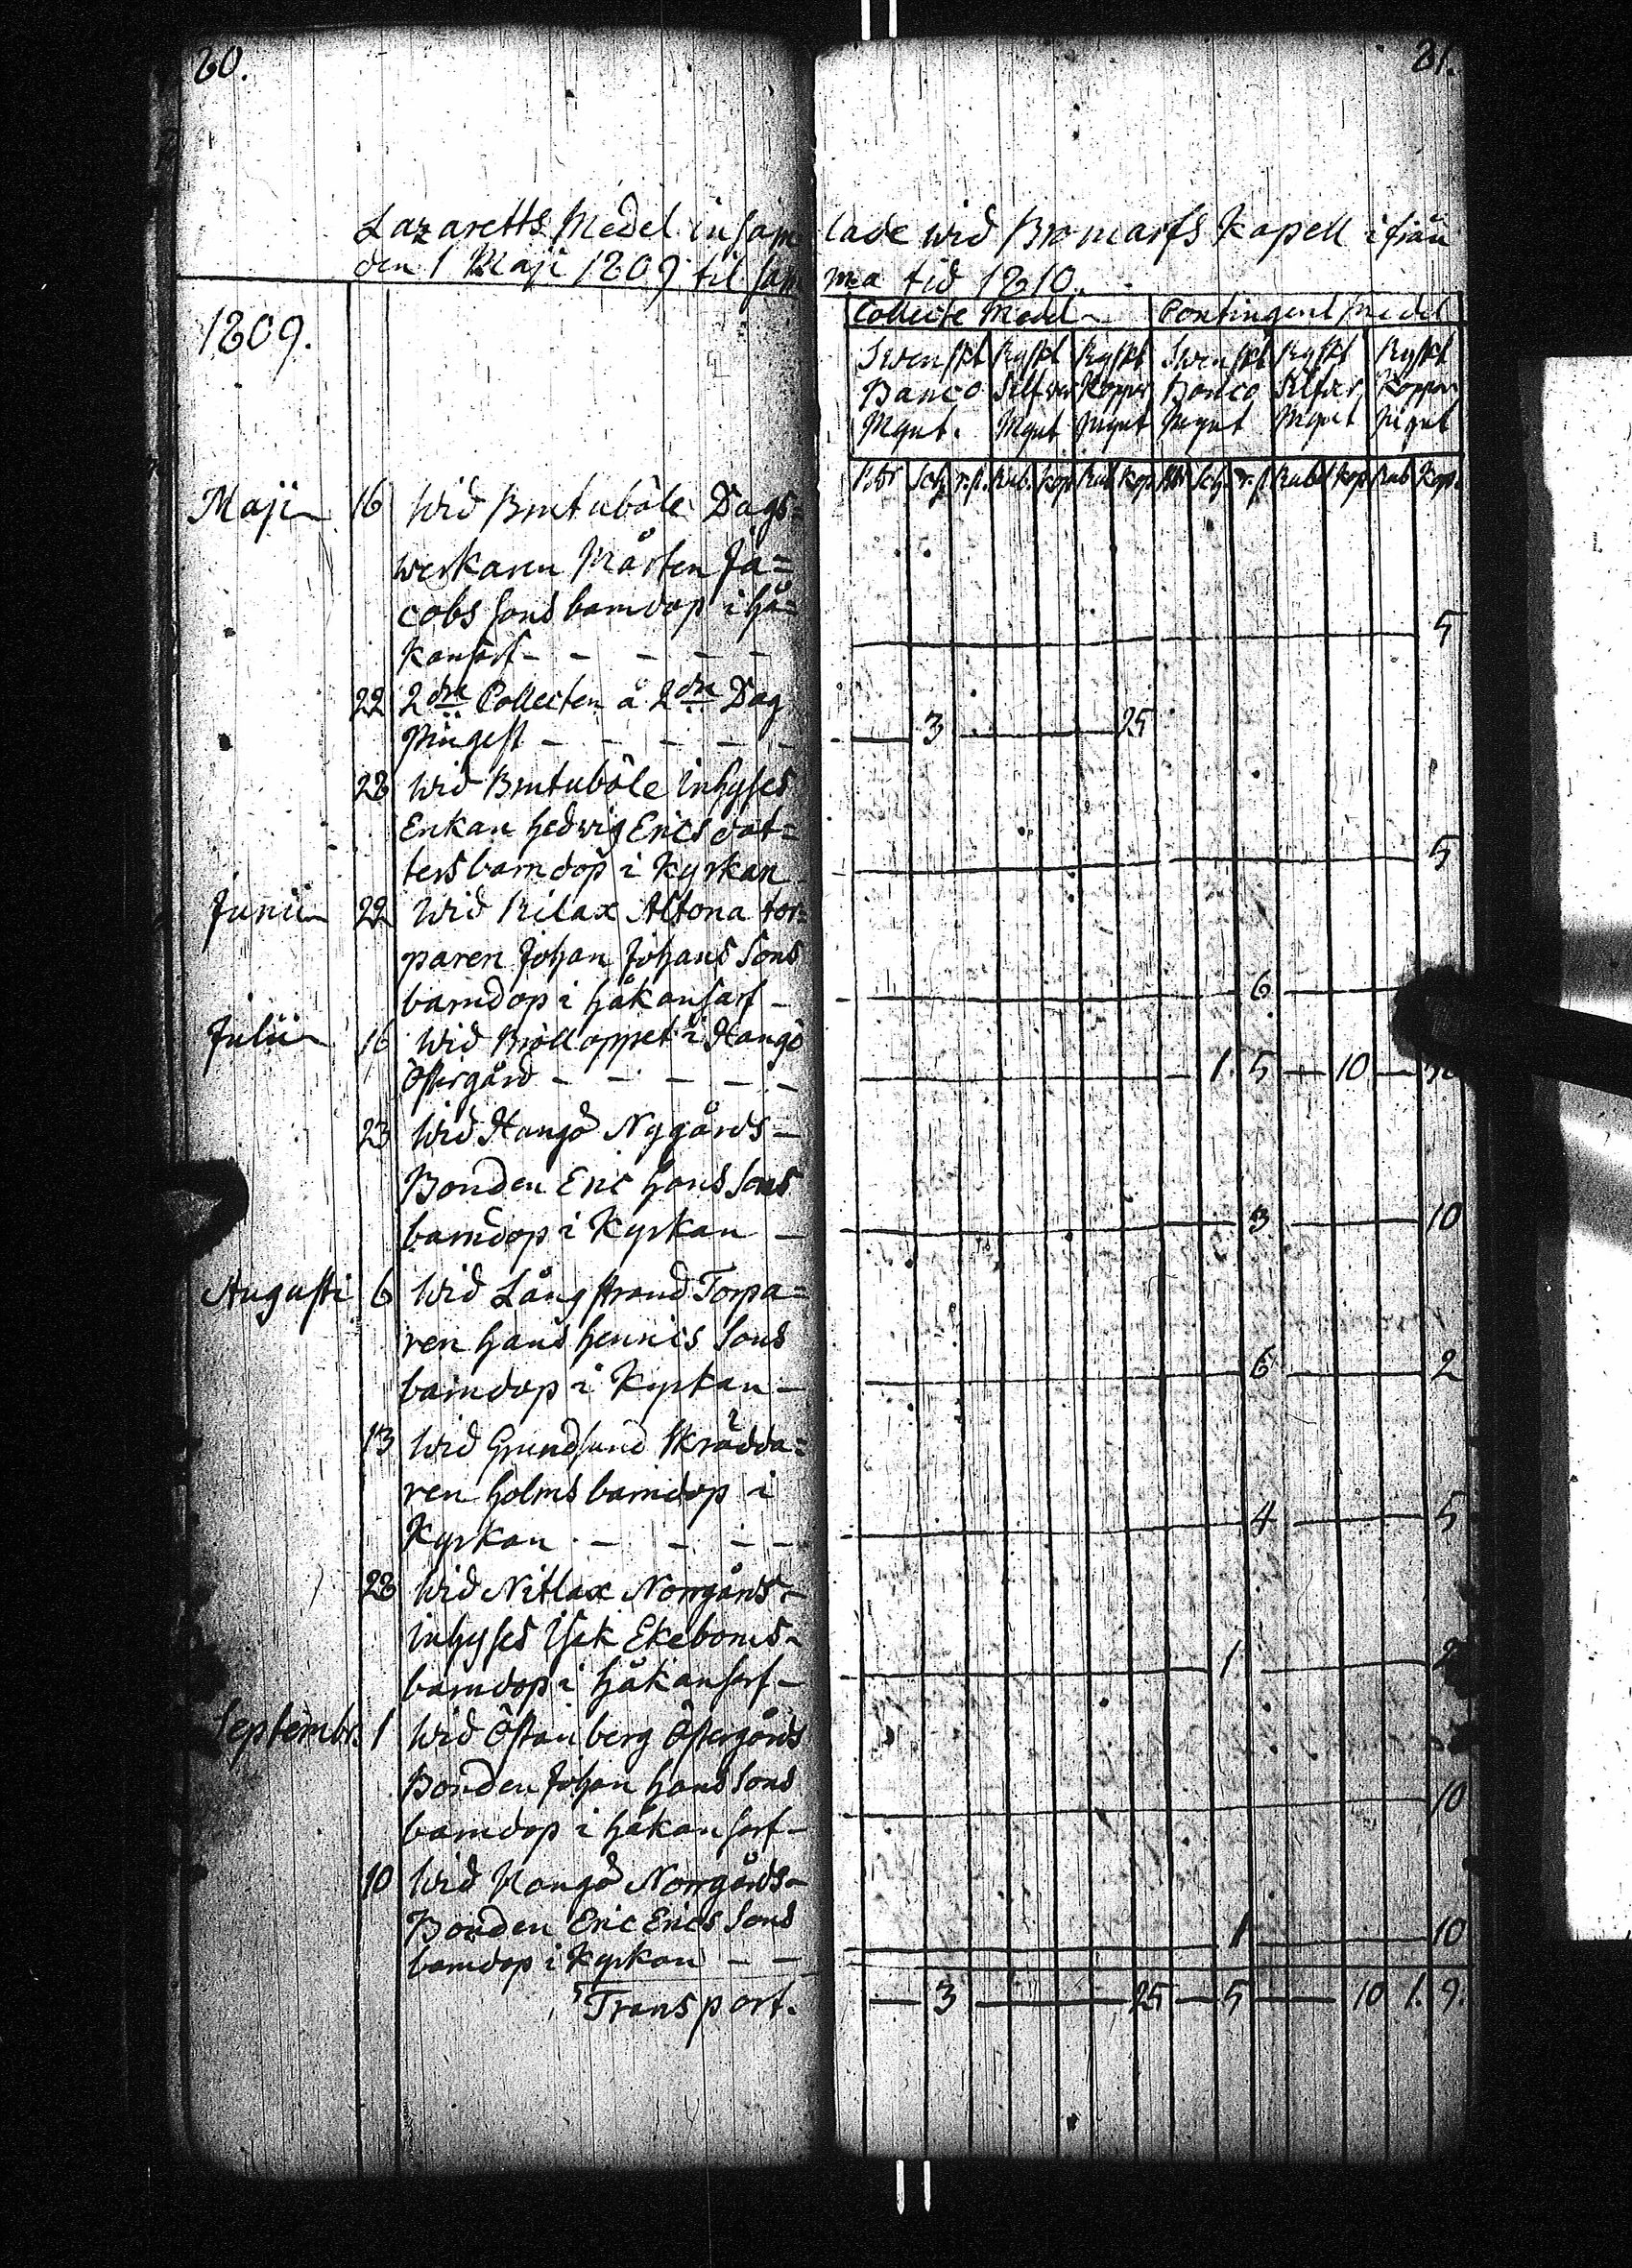 80.
81.
Lazaretts Medel insam lade wid Bromarfs Kapell ifrån
den 1 Maji 1809 til sam ma tid 1810.
1809.
Collecte Medel Contingent Medel
Swenskt Ryskt Ryskt Swenskt Ryskt Ryskt
Banco Silfwer Koppar Banco Silfwer Koppar
Mynt. Mynt Mynt Mynt Mynt Mynt
Rdr Sch. r.st. Rub. kop Rub kop Rdr Sch. r.st Rub kop Rub Kop.
Maji 16 Wid Brutuböle Dags=
werkaren Mårten Ja=
cobs Sons barndop i Hå= 5
kansarf - - - - -
22 2dra Collecten å 2dra Dag
Pingest - - - - - 3 25
28 Wid Brutuböle Inhyses
Enkan Hedwig Erics dot=
ters barndop i Kyrkan 5
Junii 22 Wid Rilax Altona tor=
paren Johan Johans Sons
barndop i Håkansarf - 6
Julii 16 Wid Brölloppet i Hangö
Östergård - - - - - 1. 5 10
23 Wid Hangö Nygårds -
Bonden Eric Hans Sons
barndop i Kyrkan - 3 10
Augusti 6 Wid Långstrand Torpa=
ren Hans Henrics Sons
barndop i Kyrkan - 6 2
13 Wid Grundsund Skrädda=
ren Holms barndop i
Kyrkan - - - - 4 5
28 Wid Nitlax Norrgårds -
Inhyses Isak Ekeboms -
barndop i Håkansarf - 1 2
Septembr. 1 Wid Östanberg Östergårds
Bonden Johan Hans Sons
barndop i Håkansarf - 10
10 Wid Hangö Norrgårds -
Bonden Eric Erics Sons
barndop i Kyrkan - - 1 10
Transport. 3 25 5 10 1. 9.